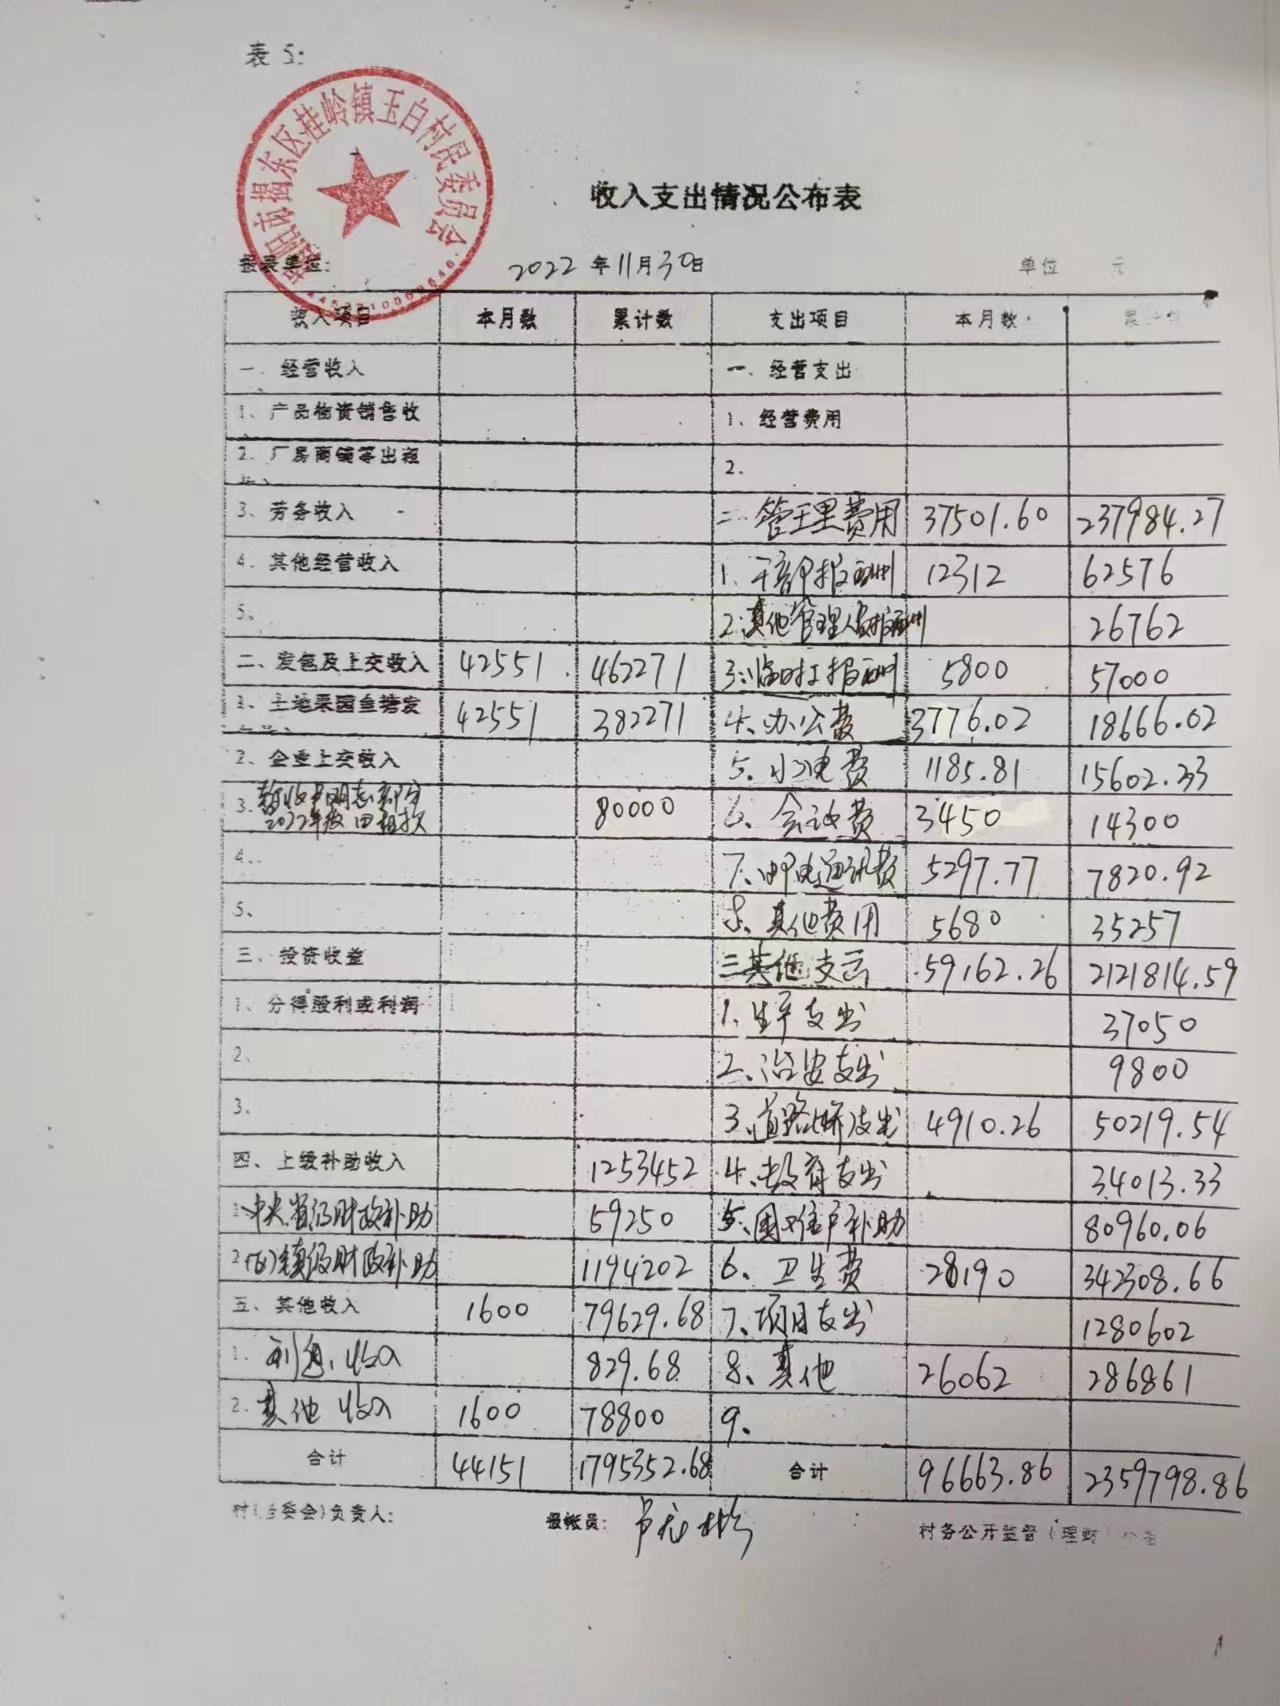 表 5:
揭阳市揭东区桂岭镇玉白村民委员会
收入支出情况公布表
报表单位: 2022 年 11月30日 单位 元
收入项目 本月数 累计数 支出项目 本月数 累计数
一. 经营收入 一. 经营支出
1、产品物资销售收 1、经营费用
2. 厂房商铺等出租 2.
3、劳务收入 二 管理费用 37501.60 237984.27
4. 其他经营收入 1. 干部报酬 12312 62576
5、 2.其他管理人员报酬 26762
二、发包及上交收入 42551 462271 3.临时工报酬 5800 57000
1、土地果园鱼塘发 42551 382271 4.办公费 3776.02 18666.02
2、企业上交收入 5.水电费 1185.81 15602.33
3. 2022年度田租款 80000 6.会议费 3450 14300
4. 7.邮电通讯费 5297.77 7820.92
5、 8.其他费用 5680 35257
三、投资收益 三其他支出 59162.26 2121814.59
1、分得股利或利润 1.生产支出 37050
2、 2.治安支出 9800
3. 3.道路桥支出 4910.26 50219.54
四、上级补助收入 1253452 4.教育支出 34013.33
1.中央省级财政补助 59250 5. 补助 80960.06
2.镇级财政补助 1194202 6.卫生费 28190 342308.66
五、其他收入 1600 79629.68 7.项目支出 1280602
1. 利息收入 829.68 8.其他 26062 286861
2. 其他收入 1600 78800 9.
合计 44151 1795352.68 合计 96663.86 2359798.86
村(居委会)负责人: 报帐员: 村务公开监督(理财)